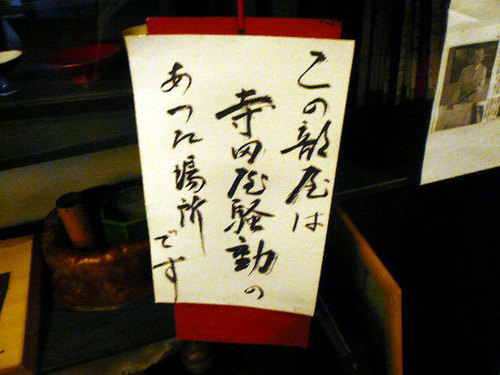 この部屋は
寺田屋騒動の
あつた場所
です